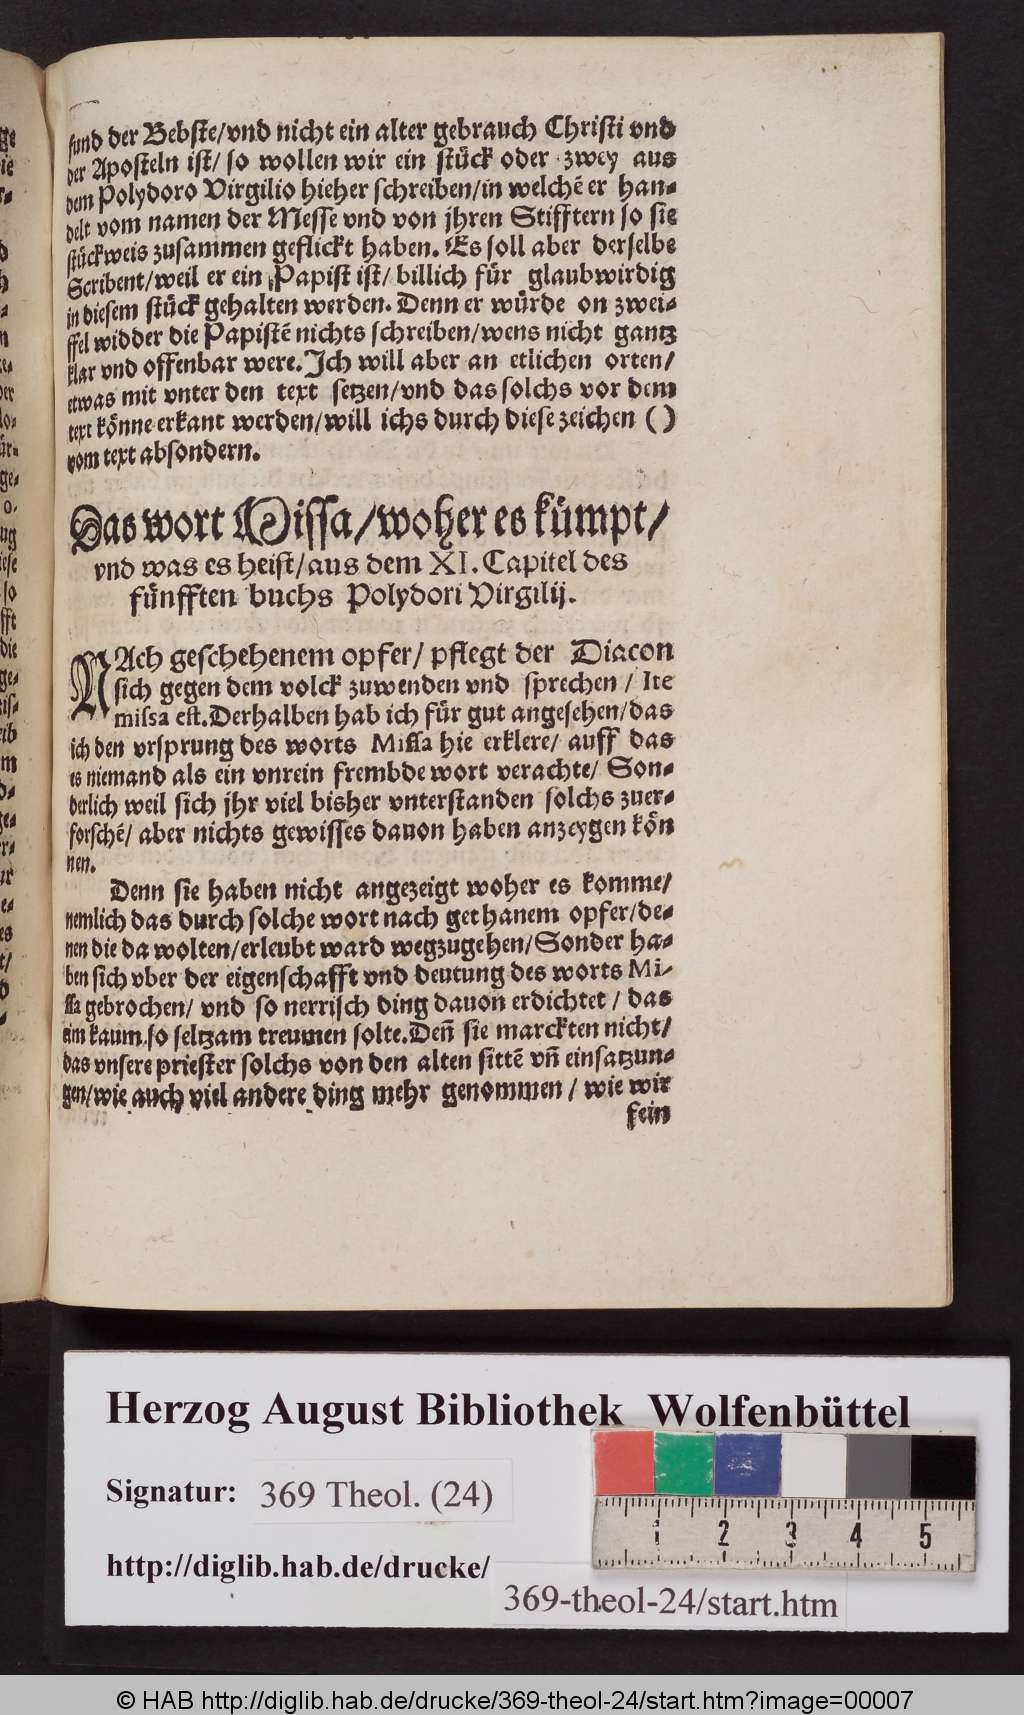 fund der Bebste/vnd nicht ein alter gebrauch Christi vnd
der Aposteln ist/ so wollen wir ein stück oder zwey aus
dem Polydoro Virgilio hieher schreiben/in welchē er han-
delt vom namen der Messe vnd von jhren Stifftern so sie
stückweis zusammen geflickt haben. Es soll aber derselbe
Scribent/weil er ein Papist ist/ billich für glaubwirdig
in diesem stück gehalten werden. Denn er würde on zwei-
ffel widder die Papistē nichts schreiben/wens nicht gantz
klar vnd offenbar were. Jch will aber an etlichen orten/
etwas mit vnter den text setzen/vnd das solchs vor dem
text könne erkant werden/will ichs durch diese zeichen ( )
vom text absondern.
Das wort Missa/woher es kümpt/
vnd was es heist/aus dem XI. Capitel des
fünfften buchs Polydori Virgilij.
NAch geschehenem opfer/ pflegt der Diacon
sich gegen dem volck zuwenden vnd sprechen / Ite
missa est. Derhalben hab ich für gut angesehen/das
ich den vrsprung des worts Missa hie erklere/ auff das
es niemand als ein vnrein frembde wort verachte/ Son-
derlich weil sich jhr viel bisher vnterstanden solchs zuer-
forschē/ aber nichts gewisses dauon haben anzeygen kön
nen.
Denn sie haben nicht angezeigt woher es komme/
nemlich das durch solche wort nach gethanem opfer/de-
nen die da wolten/erleubt ward wegzugehen/Sonder ha-
ben sich vber der eigenschafft vnd deutung des worts Mi-
ssa gebrochen/ vnd so nerrisch ding dauon erdichtet / das
eim kaum so seltzam treumen solte. Deñ sie marckten nicht/
das vnsere priester solchs von den alten sittē vñ einsatzun-
gen/wie auch viel andere ding mehr genommen / wie wir
fein
Herzog August Bibliothek Wolfenbüttel
Signatur: 369 Theol. (24)
http://diglib.hab.de/drucke/ 369-theol-24/start.htm
1 2 3 4 5
© HAB http://diglib.hab.de/drucke/369-theol-24/start.htm?image=00007